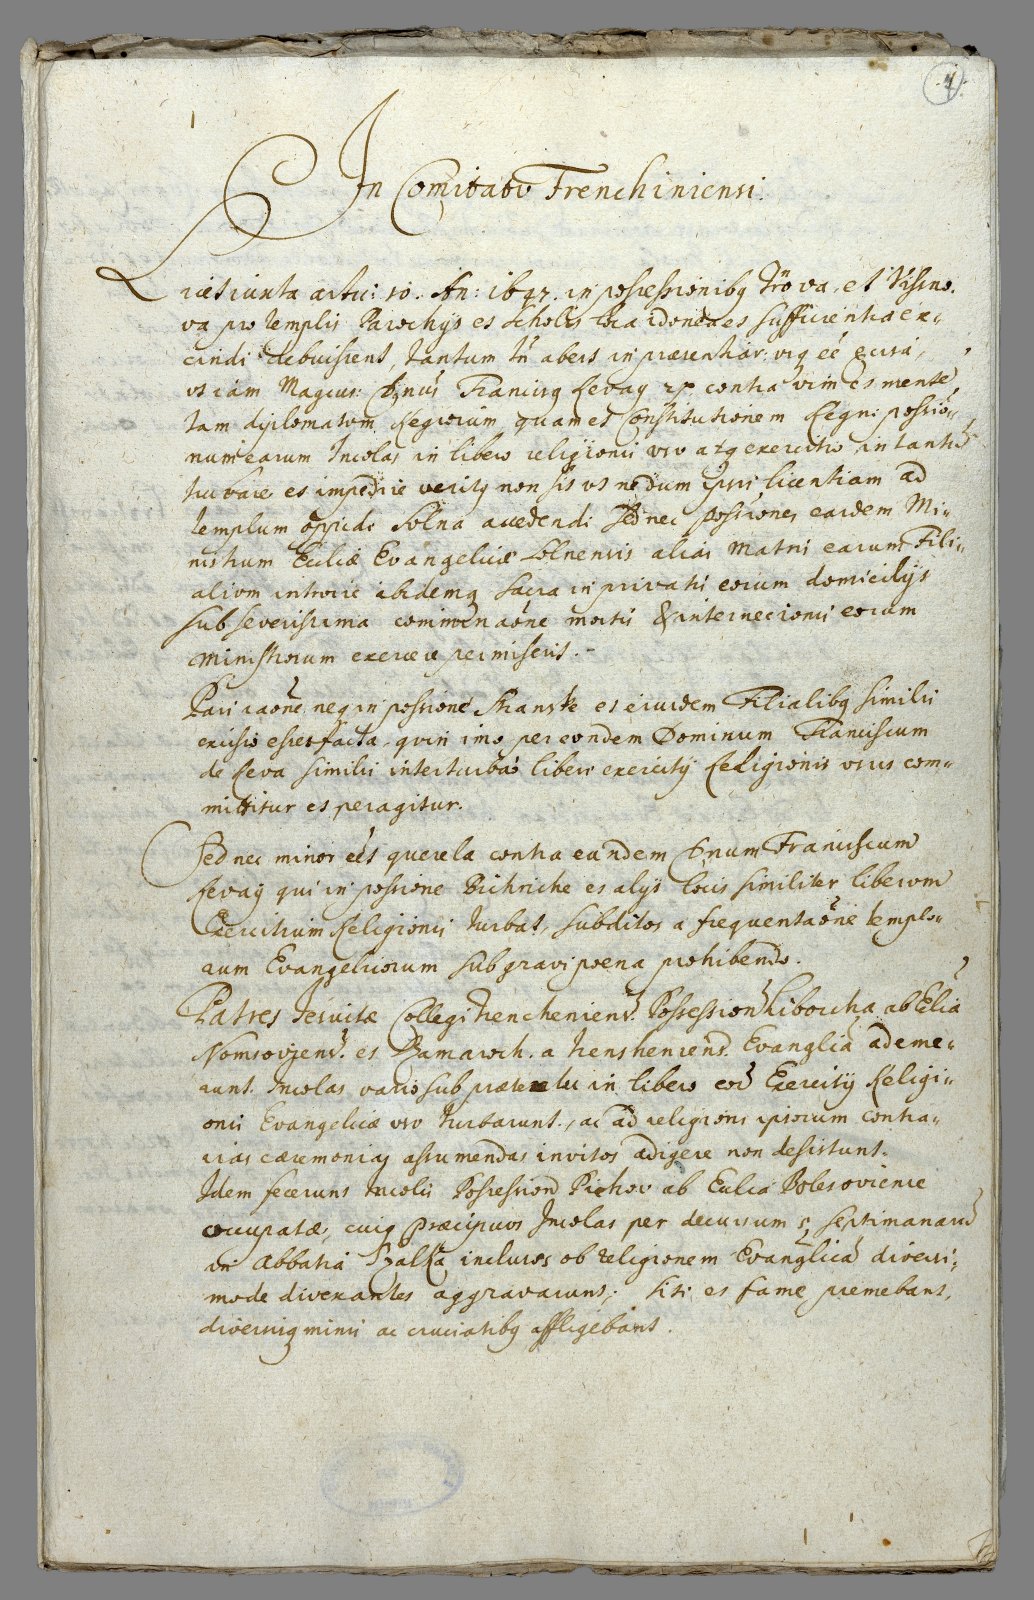 4.
In Comitatu Trenchiniensi.
Licet iuxta artic: 10. An: 1647. in possessionibq Trnova, et Visno,
va pro templis Parochijs et Scholis loca idonea et sufficientia ex-
cindi debuissent, tantum tn abest in praesentiar: usq eé excisa,
ut iam Magcus: Dnus Franciscq Revay rp contra vim et mente,
tam diplomatum Regiorum quam et Constitutionem Regni possio-
num earum Incolas in libero religionis usu atq exercitio in tantu
turbare et impedire veritq non sit ut nedum ipsis licentiam ad
templum oppidi Solna accedendi Sed nec possiones eaedem Mi-
nistrum Eccliae Evangelicae Solnensis alias Matris earum Fili-
alium introire ibidemq sacra in privatis eorum domicilijs
sub severissima comminaone mortis & internecionis eorum
Ministrorum exercere permiserit. -
Pari raone neq in possione Stanske et eiusdem Filialibq similis
excisio esset facta, quin imo per eundem Dominum Franciscum
de Reva similis interturbao liberi exercitij Religionis usus com-
mittitur et peragitur.
Sed nec minor eét querela contra eandem Dnum Franciscum
Revaÿ qui in possione Bichriche et alijs locis similiter liberum
Exercitium Religionis turbat, subditos a frequentaone templo-
rum Evangelicorum sub gravi poena prohibendo.
Patres Jesuitae Collegi Trenchiniens. Possession Liborcha ab Ecliā
Nomsovjens. et Zamaroch. a Trenshiniens. Evanglicā ademe-
runt. Incolas vario sub praetextu in libero eor Exercitij Religi-
onis Evangelicae usu turbarunt, ac ad religionis ipsorum contra-
rias caeremonias assumendas invitos adigere non desistunt.
Idem fecerunt Incolis Possession Pichov ab Ecclia Bolesoviense
occupatae, cuiq praecipuos Incolas per decursum 5 septimanaru
in Abbatia Szalka inclusos ob religionem Evanglica diversi-
mode divexantes aggravarunt, siti et fame premebant,
diversisq minis ac cruciatibq affligebant.